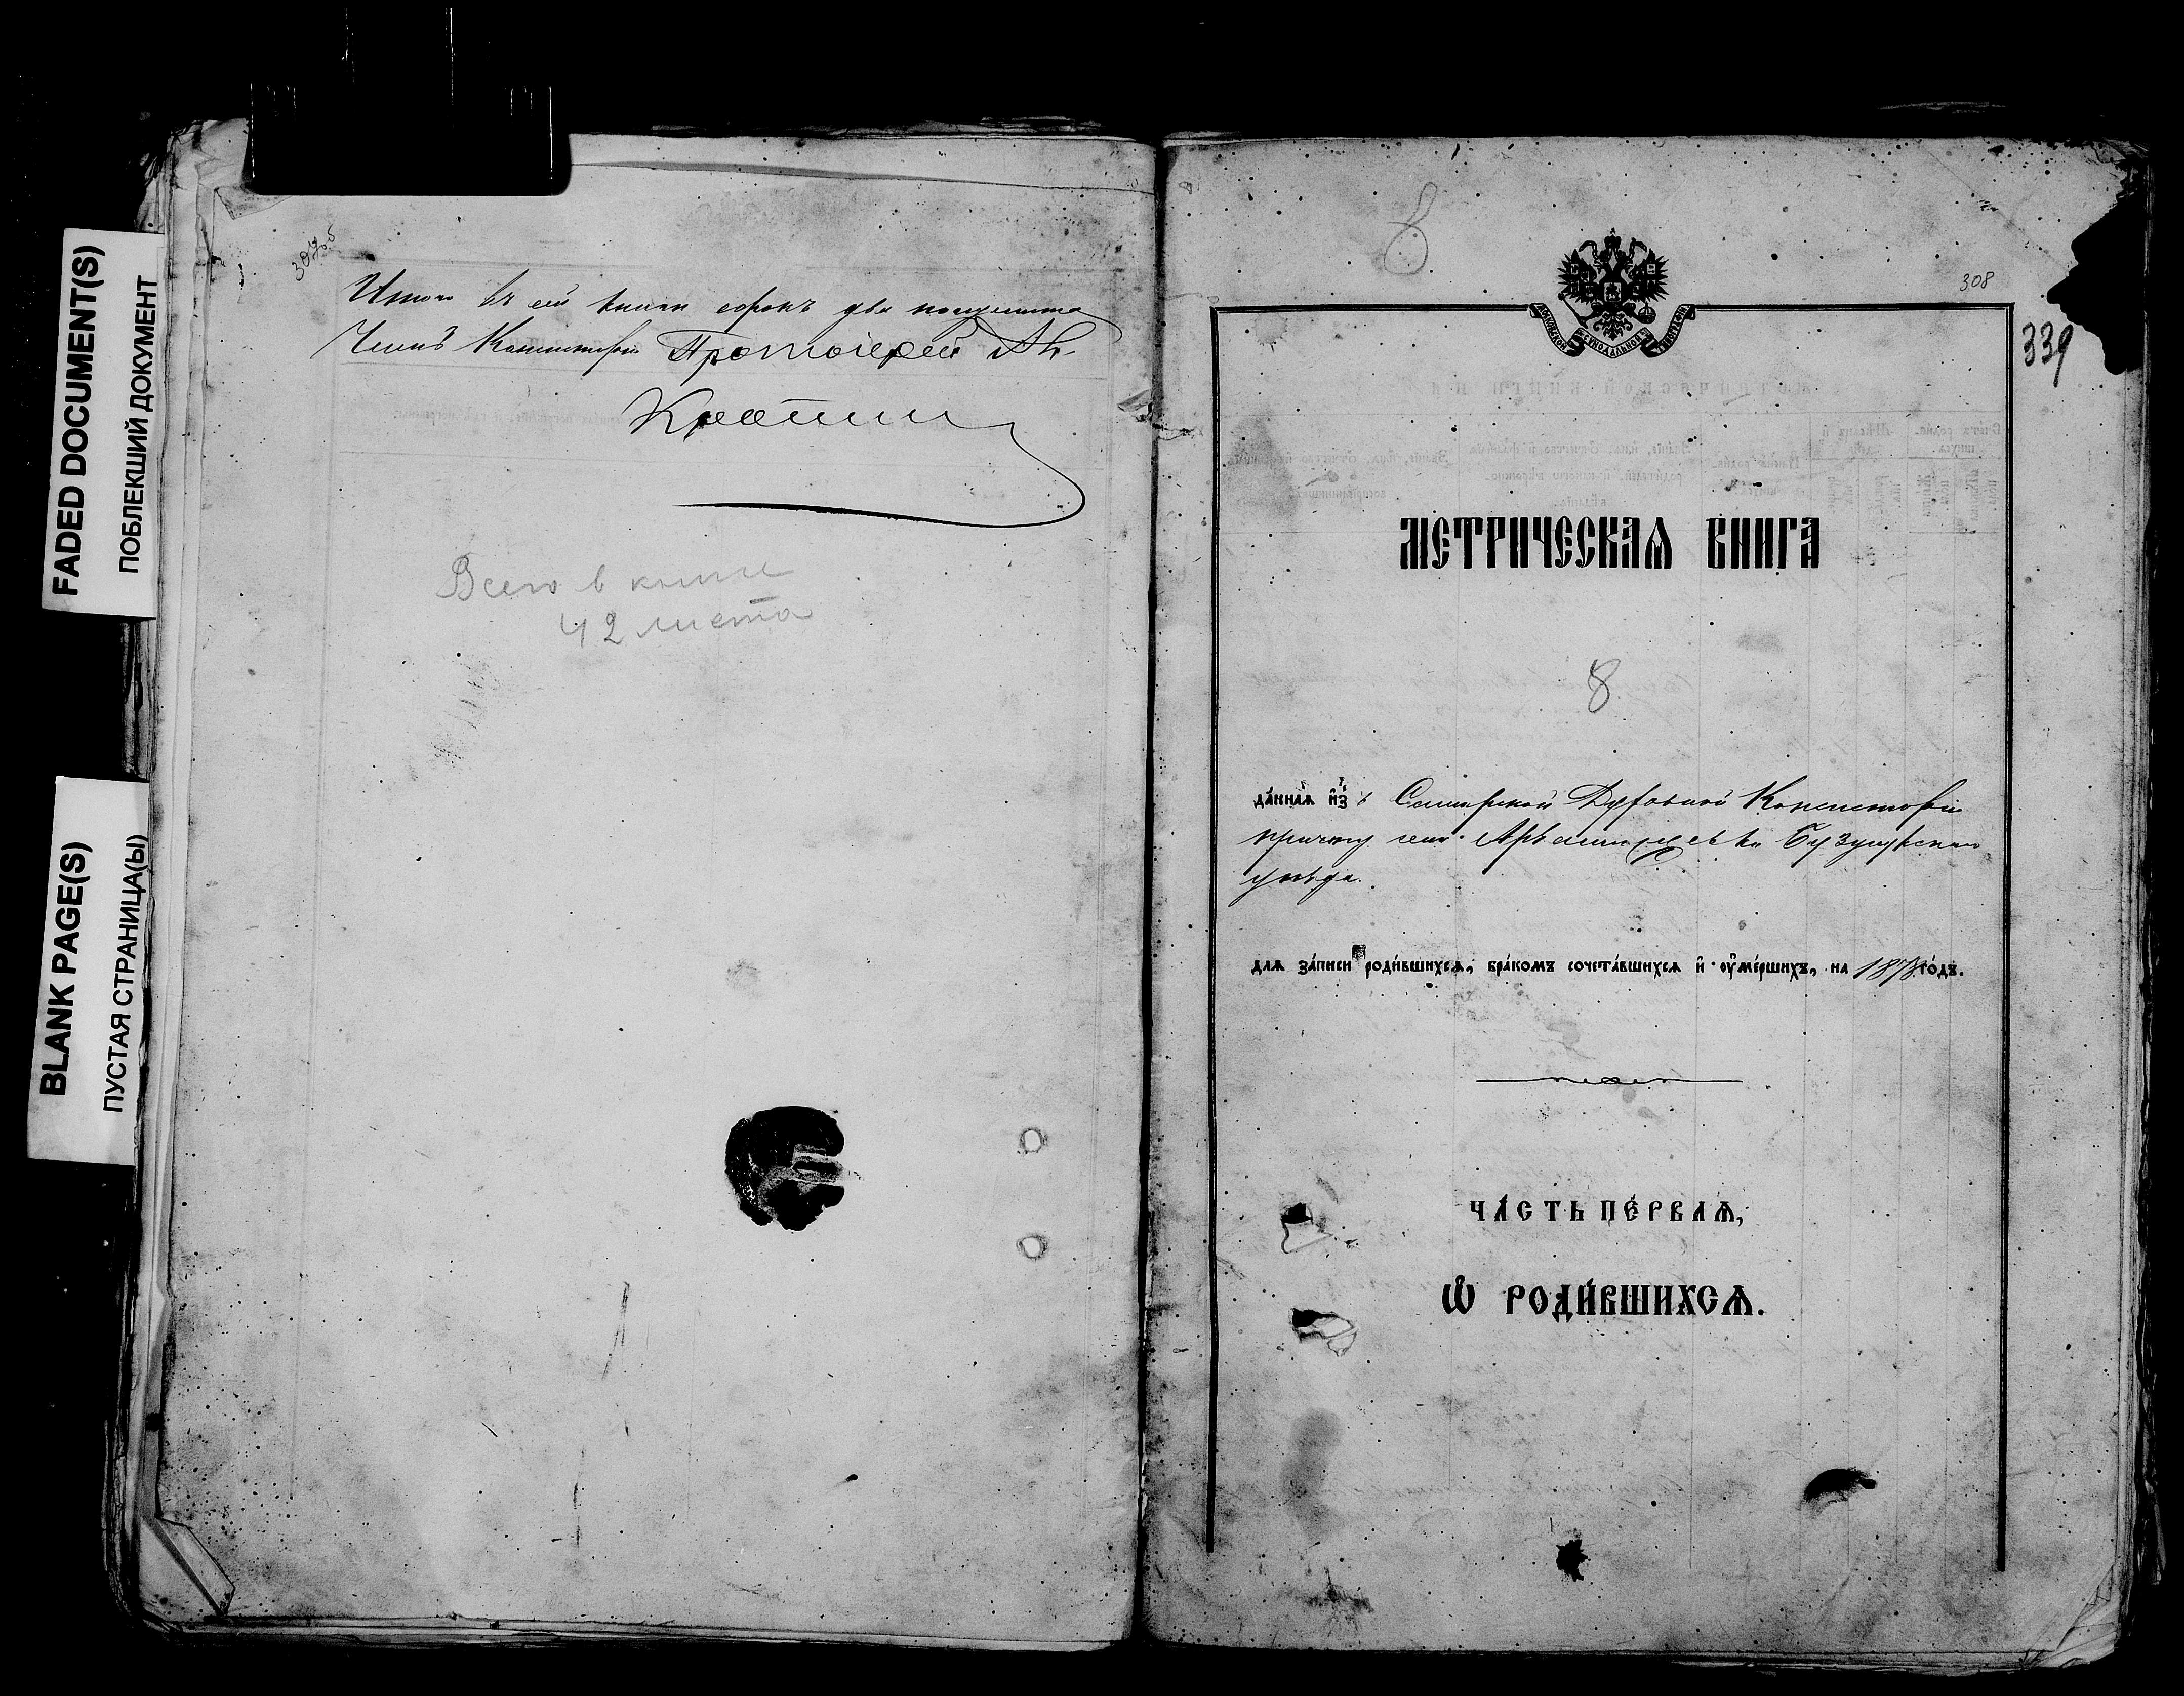 FADED DOCUMENT(S)
ПОБЛЕКШИЙ ДОКУМЕНТ
BLANK PAGE(S)
ПУСТАЯ СТРАНИЦА(Ы)
307об
Итого въ сей книгѣ сорокъ два полулиста
Членъ Консисторіи Протоіерей
Всего в книге
42 листа
8
308
339
МЕТРИЧЕСКАѦ КНИГА
8
да́ннаѧ и҆з̾ Самарской Духовной Консисторіи
причту села Бузулукскаго
уѣзда.
длѧ за́писи роди́вшихсѧ, бра́комъ сочета́вшихсѧ и҆ оу҆ме́ршихъ, на 1878 го́дъ.
ЧА́СТЬ ПЕ́РВАѦ,
Ѡ҆ РОДИ́ВШИХСѦ.